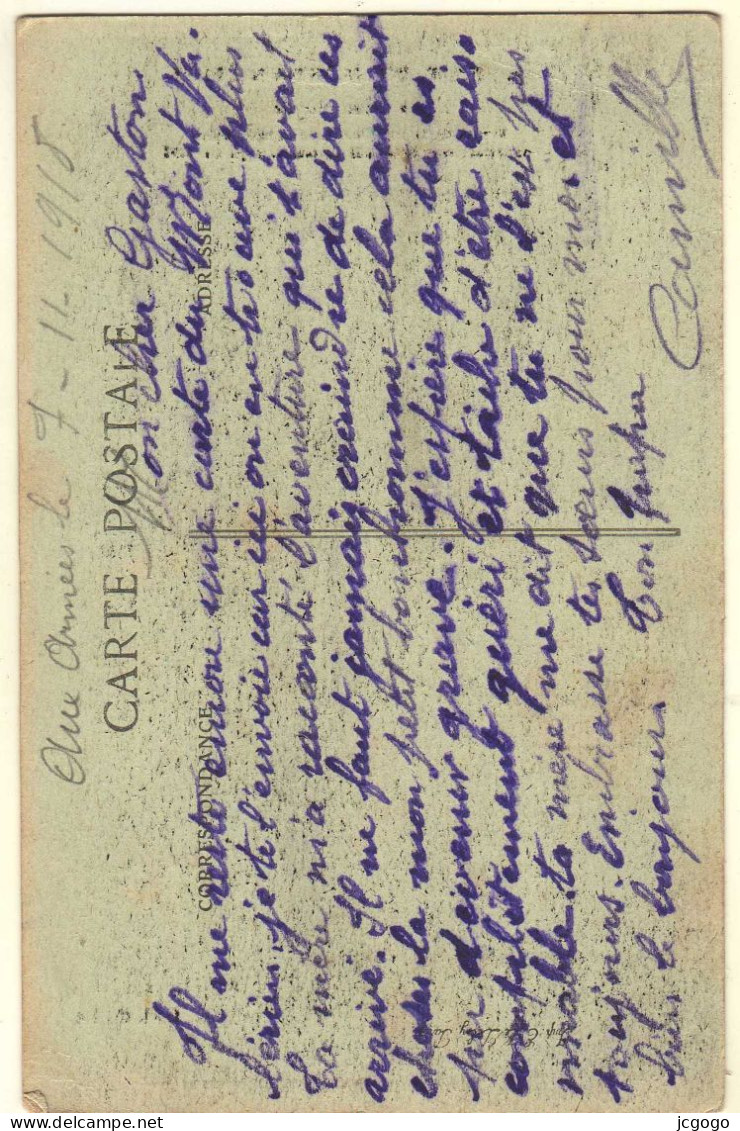 Aux Armées le 7-11-1915
CARTE POSTALE
CORRESPONDANCE
ADRESSE
Mon cher Gaston
Il me reste encore une carte du Mont Va-
lérien, je te l'envoie car ici on en trouve plus
Ta mère m'a raconté l'aventure qui t'avait
arrivé. Il ne faut jamais craindre de dire ces
choses la mon petit bonhomme cela aurait
pu devenir grave. J'espère que tu es
complètement guéri et tâche d'être raiso
nnable. ta mère me dit que tu ne l'est pas
toujours. Embrasse tes sœurs pour moi et
bien le bonjour. Ton
Camille
jcgogo